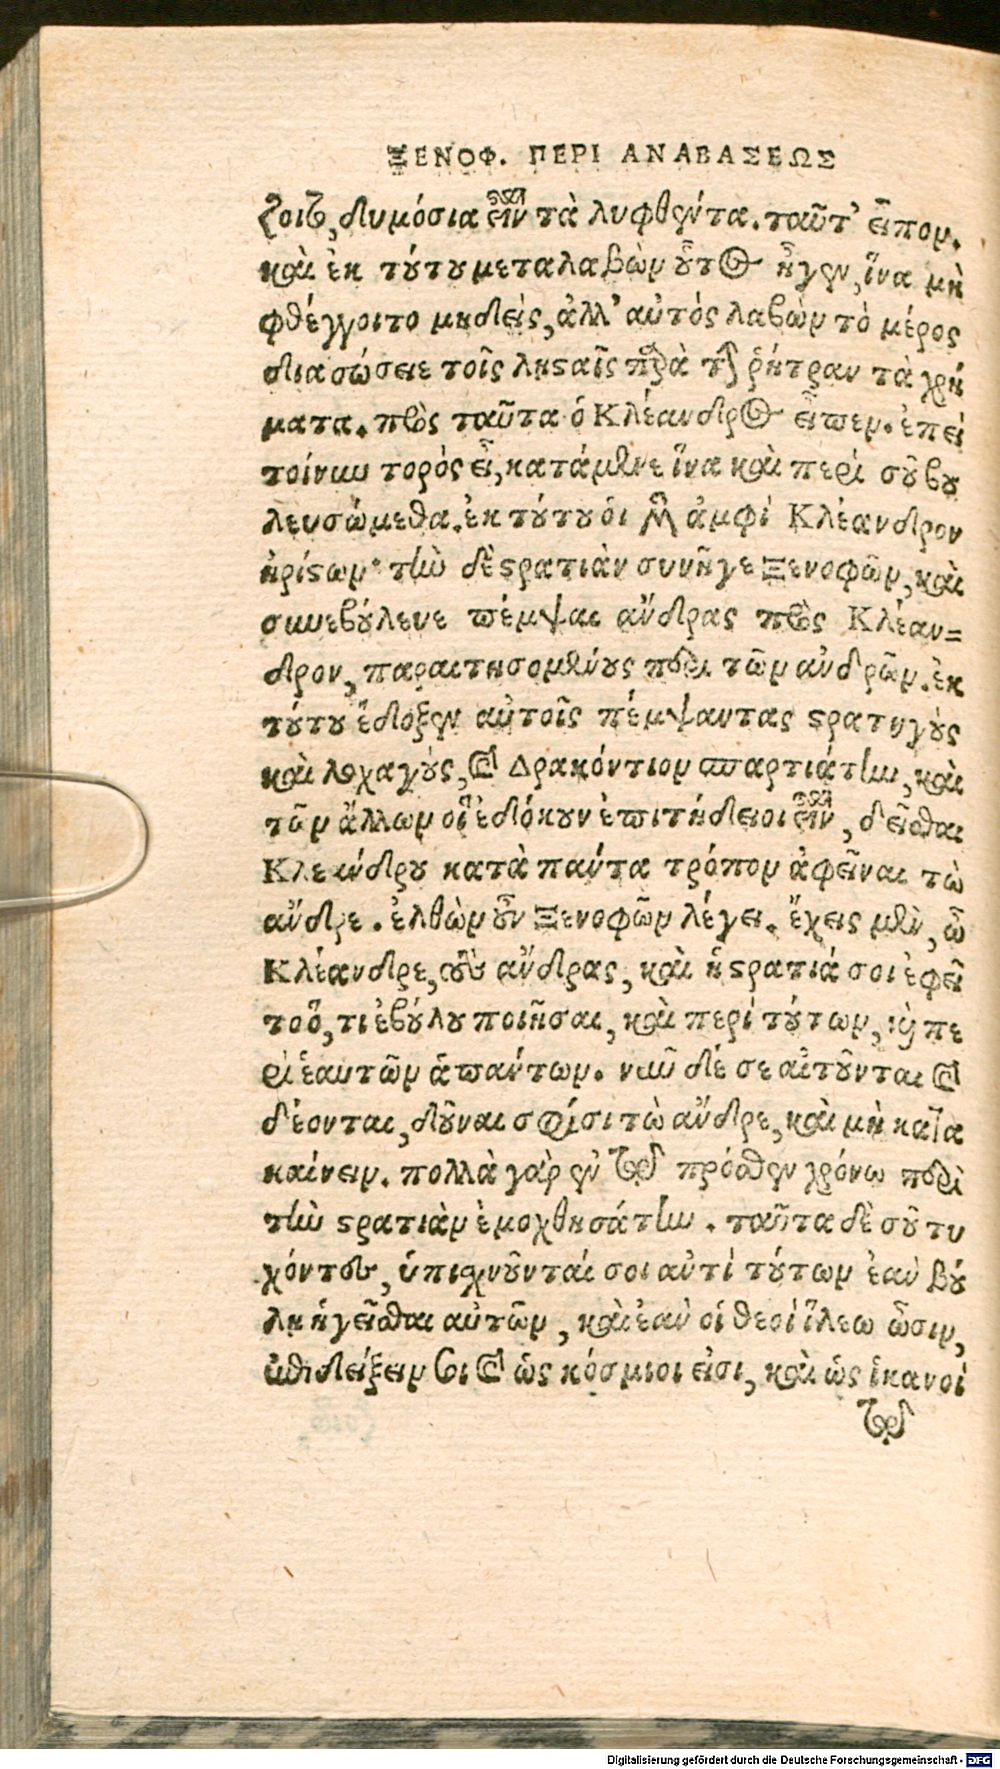 ΞΕΝΟΦ. ΠΕΡΙ ΑΝΑΒΑΣΕΩΣ
ζοις, δημόσια εἶναι τὰ ληφθέντα. ταῦτ' εἶπον.
καὶ ἐκ τούτου μεταλαβὼν οὗτος ἦγεν, ἵνα μὴ
φθέγγοιτο μηδεὶς, ἀλλ' αὐτός λαβὼν τὸ μέρος
διασώσειε τοῖς λῃσταῖς παρὰ τὴν ῥήτραν τὰ χρή
ματα. πρὸς ταῦτα ὁ Κλέανδρος εἶπεν. ἐπεὶ
τοίνυν τορός εἶ, κατάμενε ἵνα καὶ περὶ σοῦ βου
λευσώμεθα. ἐκ τούτου οἱ μὲν ἀμφὶ Κλέανδρον
ἠρίστων· τὴν δὲ στρατιὰν συνῆγε Ξενοφῶν, καὶ
συνεβούλευε πέμψαι ἄνδρας πρὸς Κλέαν=
δρον, παραιτησομένους περὶ τῶν ἀνδρῶν. ἐκ
τούτου ἔδοξεν αὐτοῖς πέμψαντας στρατηγοὺς
καὶ λοχαγοὺς, καὶ Δρακόντιον σπαρτιάτην, καὶ
τῶν ἄλλων οἳ ἐδόκουν ἐπιτήδειοι εἶναι, δεῖσθαι
Κλεάνδρου κατὰ πάντα τρόπον ἀφεῖναι τὼ
ἄνδρε. ἐλθὼν οὖν Ξενοφῶν λέγει. ἔχεις μὲν, ὦ
Κλέανδρε, τοὺς ἄνδρας, καὶ ἡ στρατιά σοι ἐφεῖ
το ὅ, τι ἐβούλου ποιῆσαι, καὶ περὶ τούτων, καὶ πε
ρὶ ἑαυτῶν ἁπάντων. νῦν δέ σε αἰτοῦνται καὶ
δέονται, δοῦναι σφίσι τὼ ἄνδρε, καὶ μὴ κατα
καίνειν. πολλὰ γὰρ ἐν τῷ πρόσθεν χρόνῳ περὶ
τὴν στρατιὰν ἐμοχθησάτην. ταῦτα δὲ σοῦ τυ
χόντες, ὑπισχνοῦνταί σοι ἀντὶ τούτων ἐὰν βού
λῃ ἡγεῖσθαι αὐτῶν, καὶ ἐὰν οἱ θεοὶ ἵλεῳ ὦσιν,
ἐπιδείξειν σοι καὶ ὡς κόσμιοι εἰσι, καὶ ὡς ἱκανοὶ
τῷ
Digitalisierung gefördert durch die Deutsche Forschungsgemeinschaft - DFG